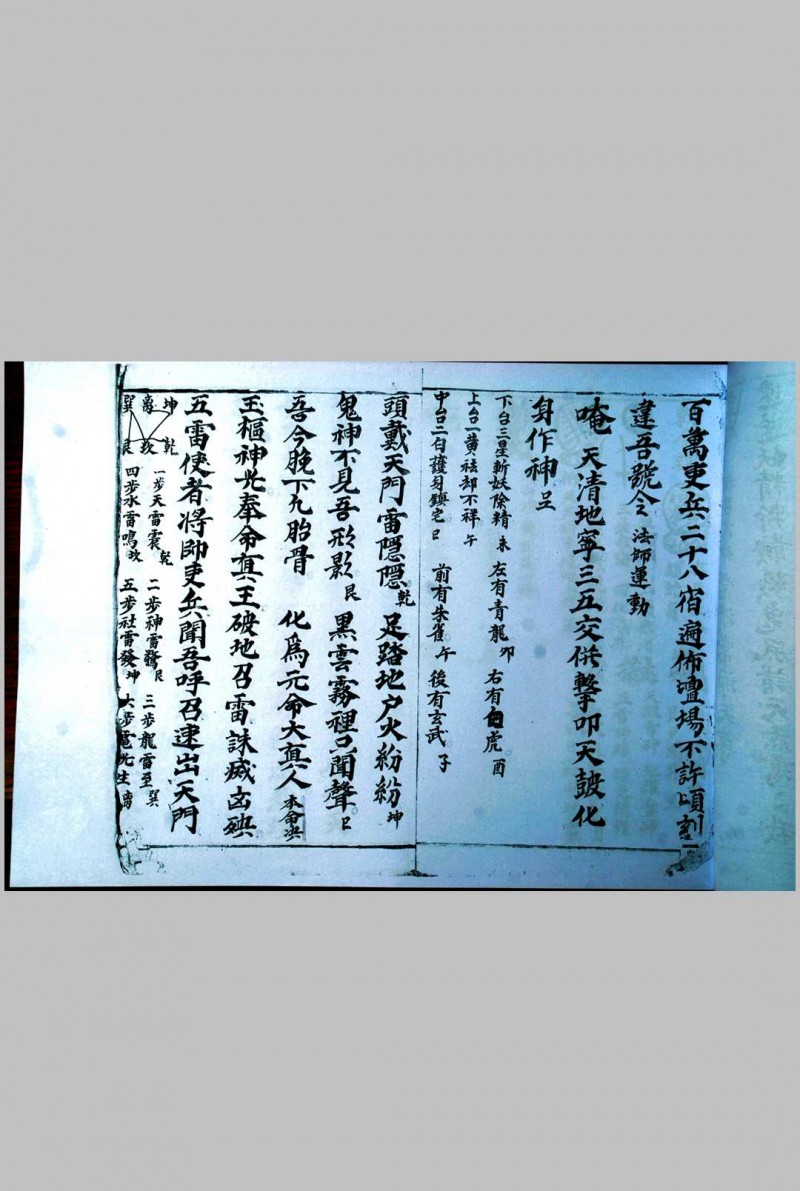 百萬吏兵二十八宿遍佈壇場不許頃刻
違吾號令 法師運動
唵 天清地寧三五交併擊叩天皷化
身作神 呈
下台三星斬妖除精 未 左有青龍 卯 右有白虎 酉
上台一黄祛却不祥 午
中台二白護身鎮宅 巳 前有朱雀 午 後有玄武 子
頭戴天門雷隱隱 乾 足踏地户火紛紛 坤
鬼神不見吾形影 艮 黒雲霧裡只聞聲 巳
吾今脫下九胎骨 化爲元命大真人 本命
玉樞神光奉命真王破地召雷誅滅凶
五雷使者將帥吏兵聞吾呼召速出天門
一步天雷震 乾 二步神雷驚 艮 三步龍雷至 巽
四步水雷鳴 五步社雷發 坤 六步電光生 离
坤 离 巽
乾 坎 艮